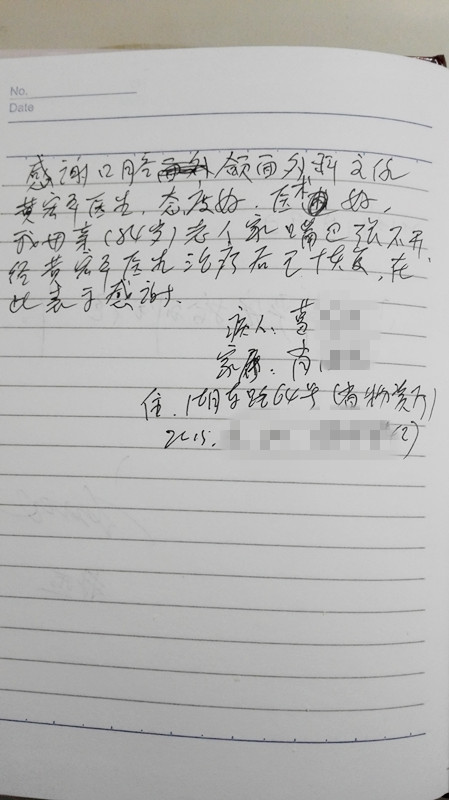 No.
Date
感谢口腔颌面外科主任
黄宏平医生,态度好,医术好,
我母亲(84岁)老人家嘴巴张不开,
经黄宏平医生治疗后已恢复,在
此表示感谢.
病人:葛
家属:肖
住.湖东路64号(省物资厅)
2015.